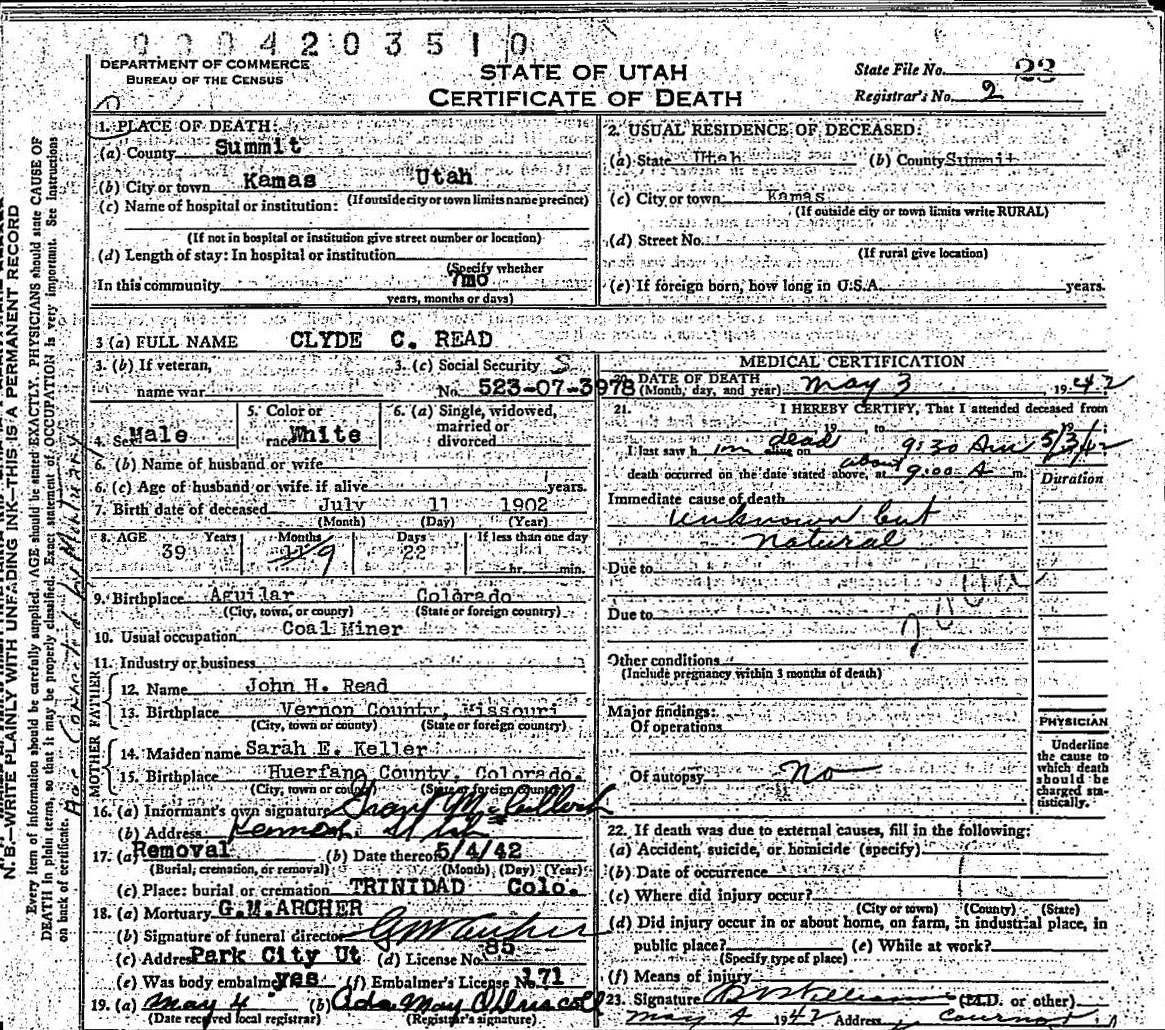 0004203510
DEPARTMENT OF COMMERCE
BUREAU OF THE CENSUS
STATE OF UTAH
CERTIFICATE OF DEATH
State File No. 23
Registrar's No. 2
1. PLACE OF DEATH:
(a) County Summit
(b) City or town Kamas Utah
(If outside city or town limits name precinct)
(c) Name of hospital or institution:
(If not in hospital or institution give street number or location)
(d) Length of stay: In hospital or institution
(Specify whether
In this community 7mo
years, months or days)
2. USUAL RESIDENCE OF DECEASED:
(a) State Utah (b) County Summit
(c) City or town: Kamas
(If outside city or town limits write RURAL)
(d) Street No.
(If rural give location)
(e) If foreign born, how long in U.S.A. years.
3 (a) FULL NAME CLYDE C. READ
3. (b) If veteran,
name war
3. (c) Social Security S
No. 523-07-3978
4. Sex Male
5. Color or
race White
6. (a) Single, widowed,
married or
divorced
6. (b) Name of husband or wife
6. (c) Age of husband or wife if alive years.
7. Birth date of deceased July 11 1902
(Month) (Day) (Year)
8. AGE Years Months Days If less than one day
39 11 9 22 hr. min.
9. Birthplace Aguilar Colorado
(City, town, or county) (State or foreign country)
10. Usual occupation Coal Miner
11. Industry or business
FATHER
12. Name John H. Read
13. Birthplace Vernon County, Missouri
(City, town or county) (State or foreign country)
MOTHER
14. Maiden name Sarah E. Keller
15. Birthplace Huerfano County, Colorado.
(City, town or county) (State or foreign country)
16. (a) Informant's own signature Grant McCullock
(b) Address
17. (a) Removal (b) Date thereof 5/4/42
(Burial, cremation, or removal) (Month) (Day) (Year)
(c) Place: burial or cremation TRINIDAD Colo.
18. (a) Mortuary G.M.ARCHER
(b) Signature of funeral director GM Archer
(c) Address Park City Ut (d) License No. 85
(e) Was body embalmed yes (f) Embalmer's License No. 171
19. (a) May 4 (b) Ada May O'Driscoll
(Date received local registrar) (Registrar's signature)
MEDICAL CERTIFICATION
20. DATE OF DEATH
(Month, day, and year) May 3 1942
21. I HEREBY CERTIFY, That I attended deceased from
19 , to 19 ;
I last saw h im dead alive on 9:30 Am 5/3/42
death occurred on the date stated above, at about 9:00 A m.
Duration
Immediate cause of death
unknown but
natural
Due to
Due to
Other conditions
(Include pregnancy within 3 months of death)
Major findings:
Of operations
Of autopsy no
PHYSICIAN
Underline
the cause to
which death
should be
charged sta-
tistically.
22. If death was due to external causes, fill in the following:
(a) Accident, suicide, or homicide (specify)
(b) Date of occurrence
(c) Where did injury occur?
(City or town) (County) (State)
(d) Did injury occur in or about home, on farm, in industrial place, in
public place? (e) While at work?
(Specify type of place)
(f) Means of injury
23. Signature (M.D. or other)
May 4 1942 Address
N. B.—WRITE PLAINLY WITH UNFADING INK—THIS IS A PERMANENT RECORD
Every item of information should be carefully supplied. AGE should be stated EXACTLY. PHYSICIANS should state CAUSE OF
DEATH in plain terms, so that it may be properly classified. Exact statement of OCCUPATION is very important. See instructions
on back of certificate.